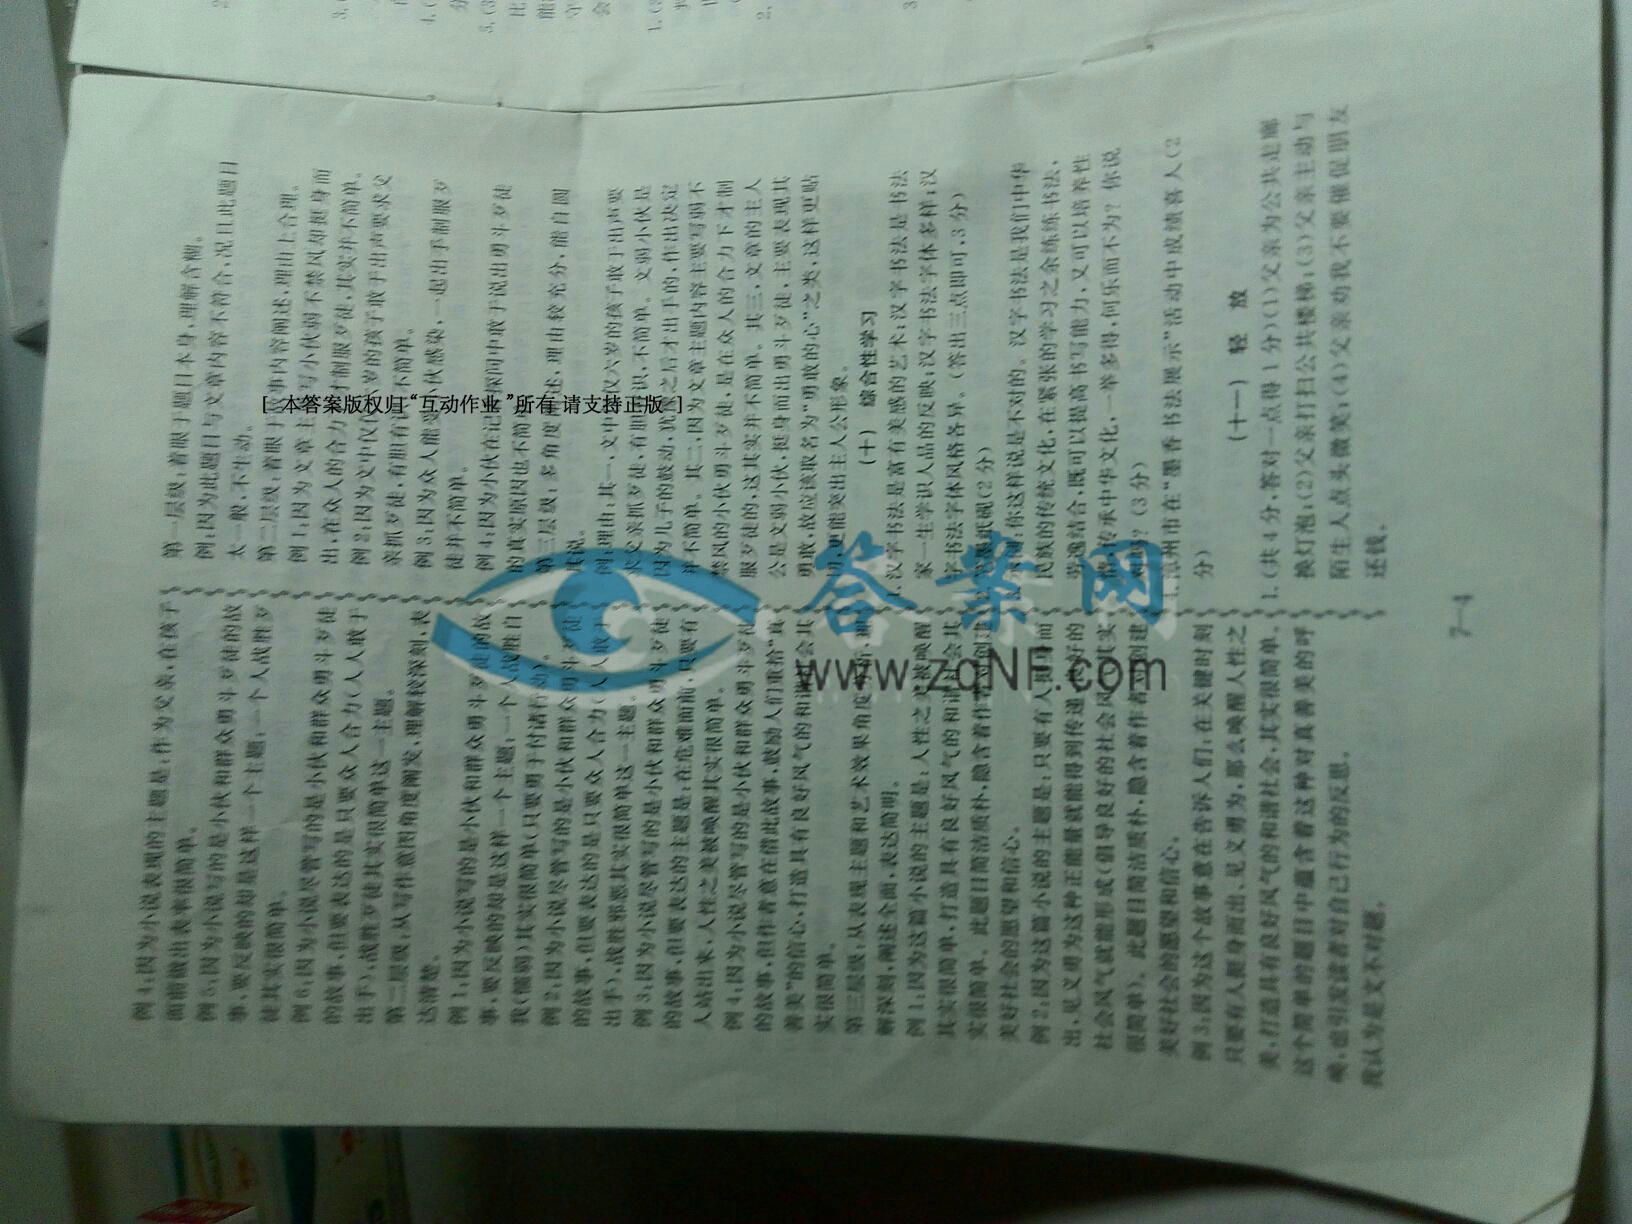 例4:因为小说表现的主题是:作为父亲,在孩子
面前做出表率很简单。
例5:因为小说写的是小伙和群众勇斗歹徒的故
事,要反映的却是这样一个主题:一个人战胜歹
徒其实很简单。
例6:因为小说尽管写的是小伙和群众勇斗歹徒
的故事,但要表达的是只要众人合力(人人敢于
出手),战胜歹徒其实很简单这一主题。
第二层级:从写作意图角度阐发,理解较深刻,表
达清楚。
例1:因为小说写的是小伙和群众勇斗歹徒的故
事,要反映的却是这样一个主题:一个人战胜自
我(懦弱)其实很简单(只要勇于付诸行动)。
例2:因为小说尽管写的是小伙和群众勇斗歹徒
的故事,但要表达的是只要众人合力(人人敢于
出手),战胜邪恶其实很简单这一主题。
例3:因为小说尽管写的是小伙和群众勇斗歹徒
的故事,但要表达的主题是:在危难面前,只要有
人站出来,人性之美被唤醒其实很简单。
例4:因为小说尽管写的是小伙和群众勇斗歹徒
的故事,但作者意在借此故事,鼓励人们重拾“真
善美”的信心,打造具有良好风气的和谐社会其
实很简单。
第三层级:从表现主题和艺术效果角度
解深刻,阐述全面,表达简明。
例1:因为这篇小说的主题是:人性之美被唤醒
其实很简单,打造具有良好风气的和谐社会其
实很简单。此题目简洁质朴,隐含着作者对创建
美好社会的愿望和信心。
例2:因为这篇小说的主题是:只要有人挺身而
出,见义勇为这种正能量就能得到传递,良好的
社会风气就能形成(倡导良好的社会风气其实
很简单)。此题目简洁质朴,隐含着作者对创建
美好社会的愿望和信心。
例3:因为这个故事意在告诉人们:在关键时刻
只要有人挺身而出、见义勇为,那么唤醒人性之
美,打造具有良好风气的和谐社会,其实很简单。
这个简单的题目中蕴含着这种对真善美的呼
唤,也引发读者对自己行为的反思。
我认为是文不对题。
第一层级:着眼于题目本身,理解含糊。
例:因为此题目与文章内容不符合,况且此题目
太一般,不生动。
第二层级:着眼于故事内容阐述,理由上合理。
例1:因为文章主要写小伙弱不禁风却挺身而
出,在众人的合力下才制服歹徒,其实并不简单。
例2:因为文中仅仅六岁的孩子敢于出声要求父
亲抓歹徒,有胆有识,不简单。
例3:因为众人能受小伙感染,一起出手制服歹
徒并不简单。
例4:因为小伙在记者探问中敢于说出勇斗歹徒
的真实原因也不简单。
第三层级:多角度阐述,理由较充分,能自圆
其说。
例:理由:其一,文中仅仅六岁的孩子敢于出声要
求父亲抓歹徒,有胆有识,不简单。文弱小伙是
因为儿子的鼓动,犹豫之后才出手的,作出决定
并不简单。其二,因为文章主题内容主要写弱不
禁风的小伙勇斗歹徒,是在众人的合力下才制
服歹徒的,这其实并不简单。其三,文章的主人
公是文弱小伙,挺身而出勇斗歹徒,主要表现其
勇敢,故应该取名为“勇敢的心”之类,这样更贴
切,更能突出主人公形象。
(十) 综合性学习
1.汉字书法是富有美感的艺术;汉字书法是书法
家一生学识人品的反映;汉字书法字体多样;汉
字书法字体风格各异。(答出三点即可,3分)
2.笔墨纸砚(2分)
3.示例:你这样说是不对的。汉字书法是我们中华
民族的传统文化,在紧张的学习之余练练书法,
劳逸结合,既可以提高书写能力,又可以培养性
情,传承中华文化,一举多得,何乐而不为?你说
对吗?(3分)
4.漳州市在“墨香书法展示”活动中成绩喜人(2
分)
(十一) 轻 放
1.(共4分,答对一点得1分)(1)父亲为公共走廊
换灯泡;(2)父亲打扫公共楼梯;(3)父亲主动与
陌生人点头微笑;(4)父亲劝我不要催促朋友
还钱。
7—4
[ 本答案版权归“互动作业”所有 请支持正版 ]
答案网
www.zqNF.com